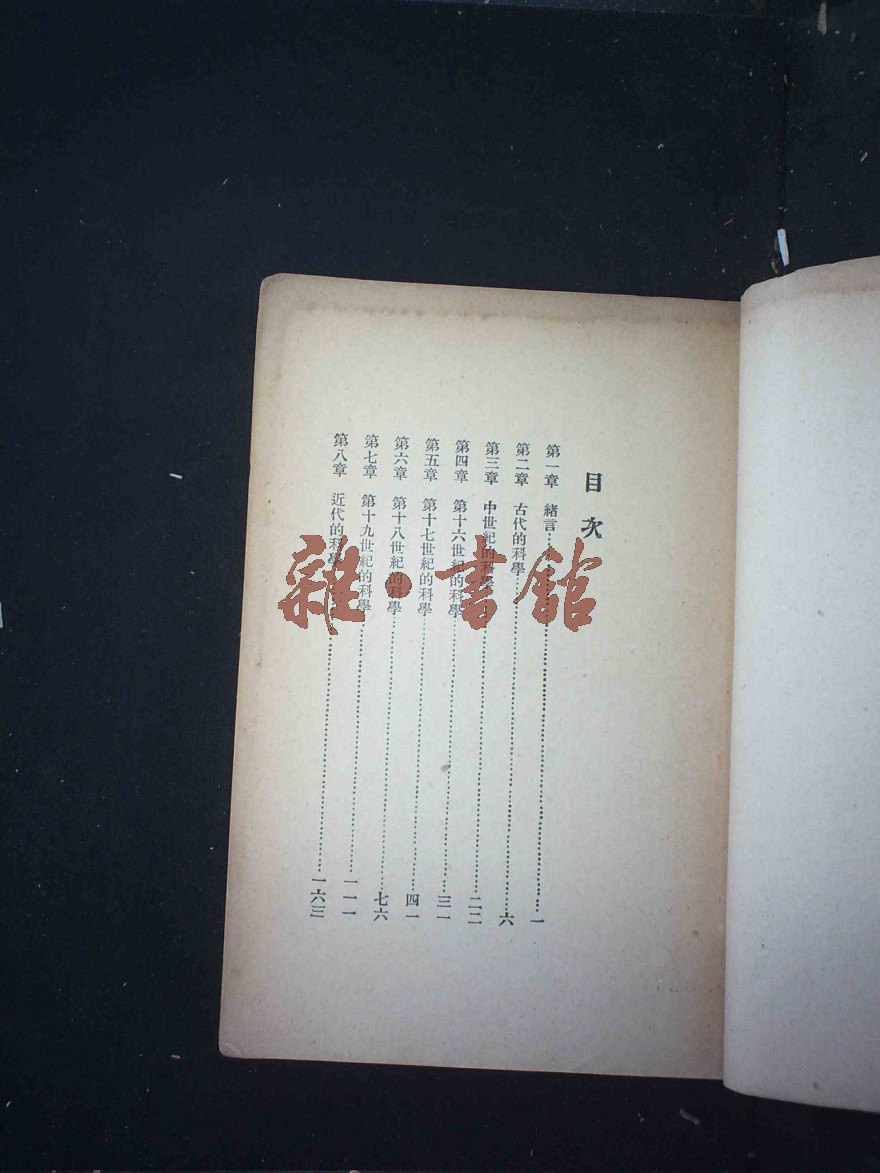 目次
第一章 緒言……一
第二章 古代的科學……六
第三章 中世紀的科學……二二
第四章 第十六世紀的科學……三一
第五章 第十七世紀的科學……四一
第六章 第十八世紀的科學……七六
第七章 第十九世紀的科學……一一一
第八章 近代的科學……一六三
雜·書館